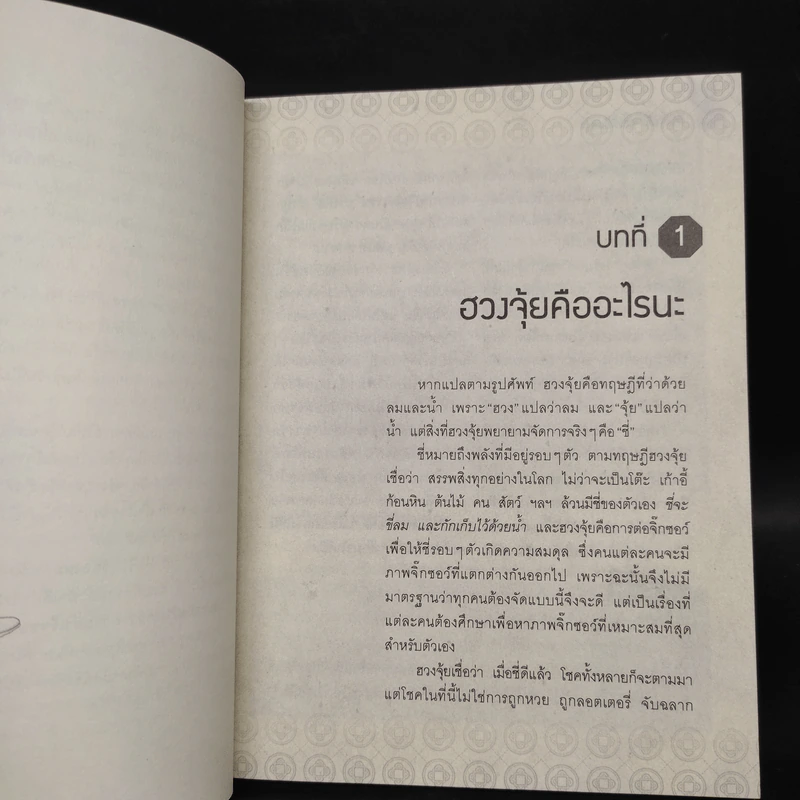 บทที่ 1
ฮวงจุ้ยคืออะไรนะ
หากแปลตามรูปศัพท์ ฮวงจุ้ยคือทฤษฎีที่ว่าด้วย
ลมและน้ำ เพราะ “ฮวง” แปลว่าลม และ “จุ้ย” แปลว่า
น้ำ แต่สิ่งที่ฮวงจุ้ยพยายามจัดการจริงๆ คือ “ชี่”
ชี่หมายถึงพลังที่มีอยู่รอบๆ ตัว ตามทฤษฎีฮวงจุ้ย
เชื่อว่า สรรพสิ่งทุกอย่างในโลก ไม่ว่าจะเป็นโต๊ะ เก้าอี้
ก้อนหิน ต้นไม้ คน สัตว์ ฯลฯ ล้วนมีชี่ของตัวเอง ชี่จะ
ขี่ลม และกักเก็บไว้ด้วยน้ำ และฮวงจุ้ยคือการต่อจิ๊กซอว์
เพื่อให้ชี่รอบๆ ตัวเกิดความสมดุล ซึ่งคนแต่ละคนจะมี
ภาพจิ๊กซอว์ที่แตกต่างกันออกไป เพราะฉะนั้นจึงไม่มี
มาตรฐานว่าทุกคนต้องจัดแบบนี้จึงจะดี แต่เป็นเรื่องที่
แต่ละคนต้องศึกษาเพื่อหาภาพจิ๊กซอว์ที่เหมาะสมที่สุด
สำหรับตัวเอง
ฮวงจุ้ยเชื่อว่า เมื่อชี่ดีแล้ว โชคทั้งหลายก็จะตามมา
แต่โชคในที่นี้ไม่ใช่การถูกหวย ถูกลอตเตอรี่ จับฉลาก